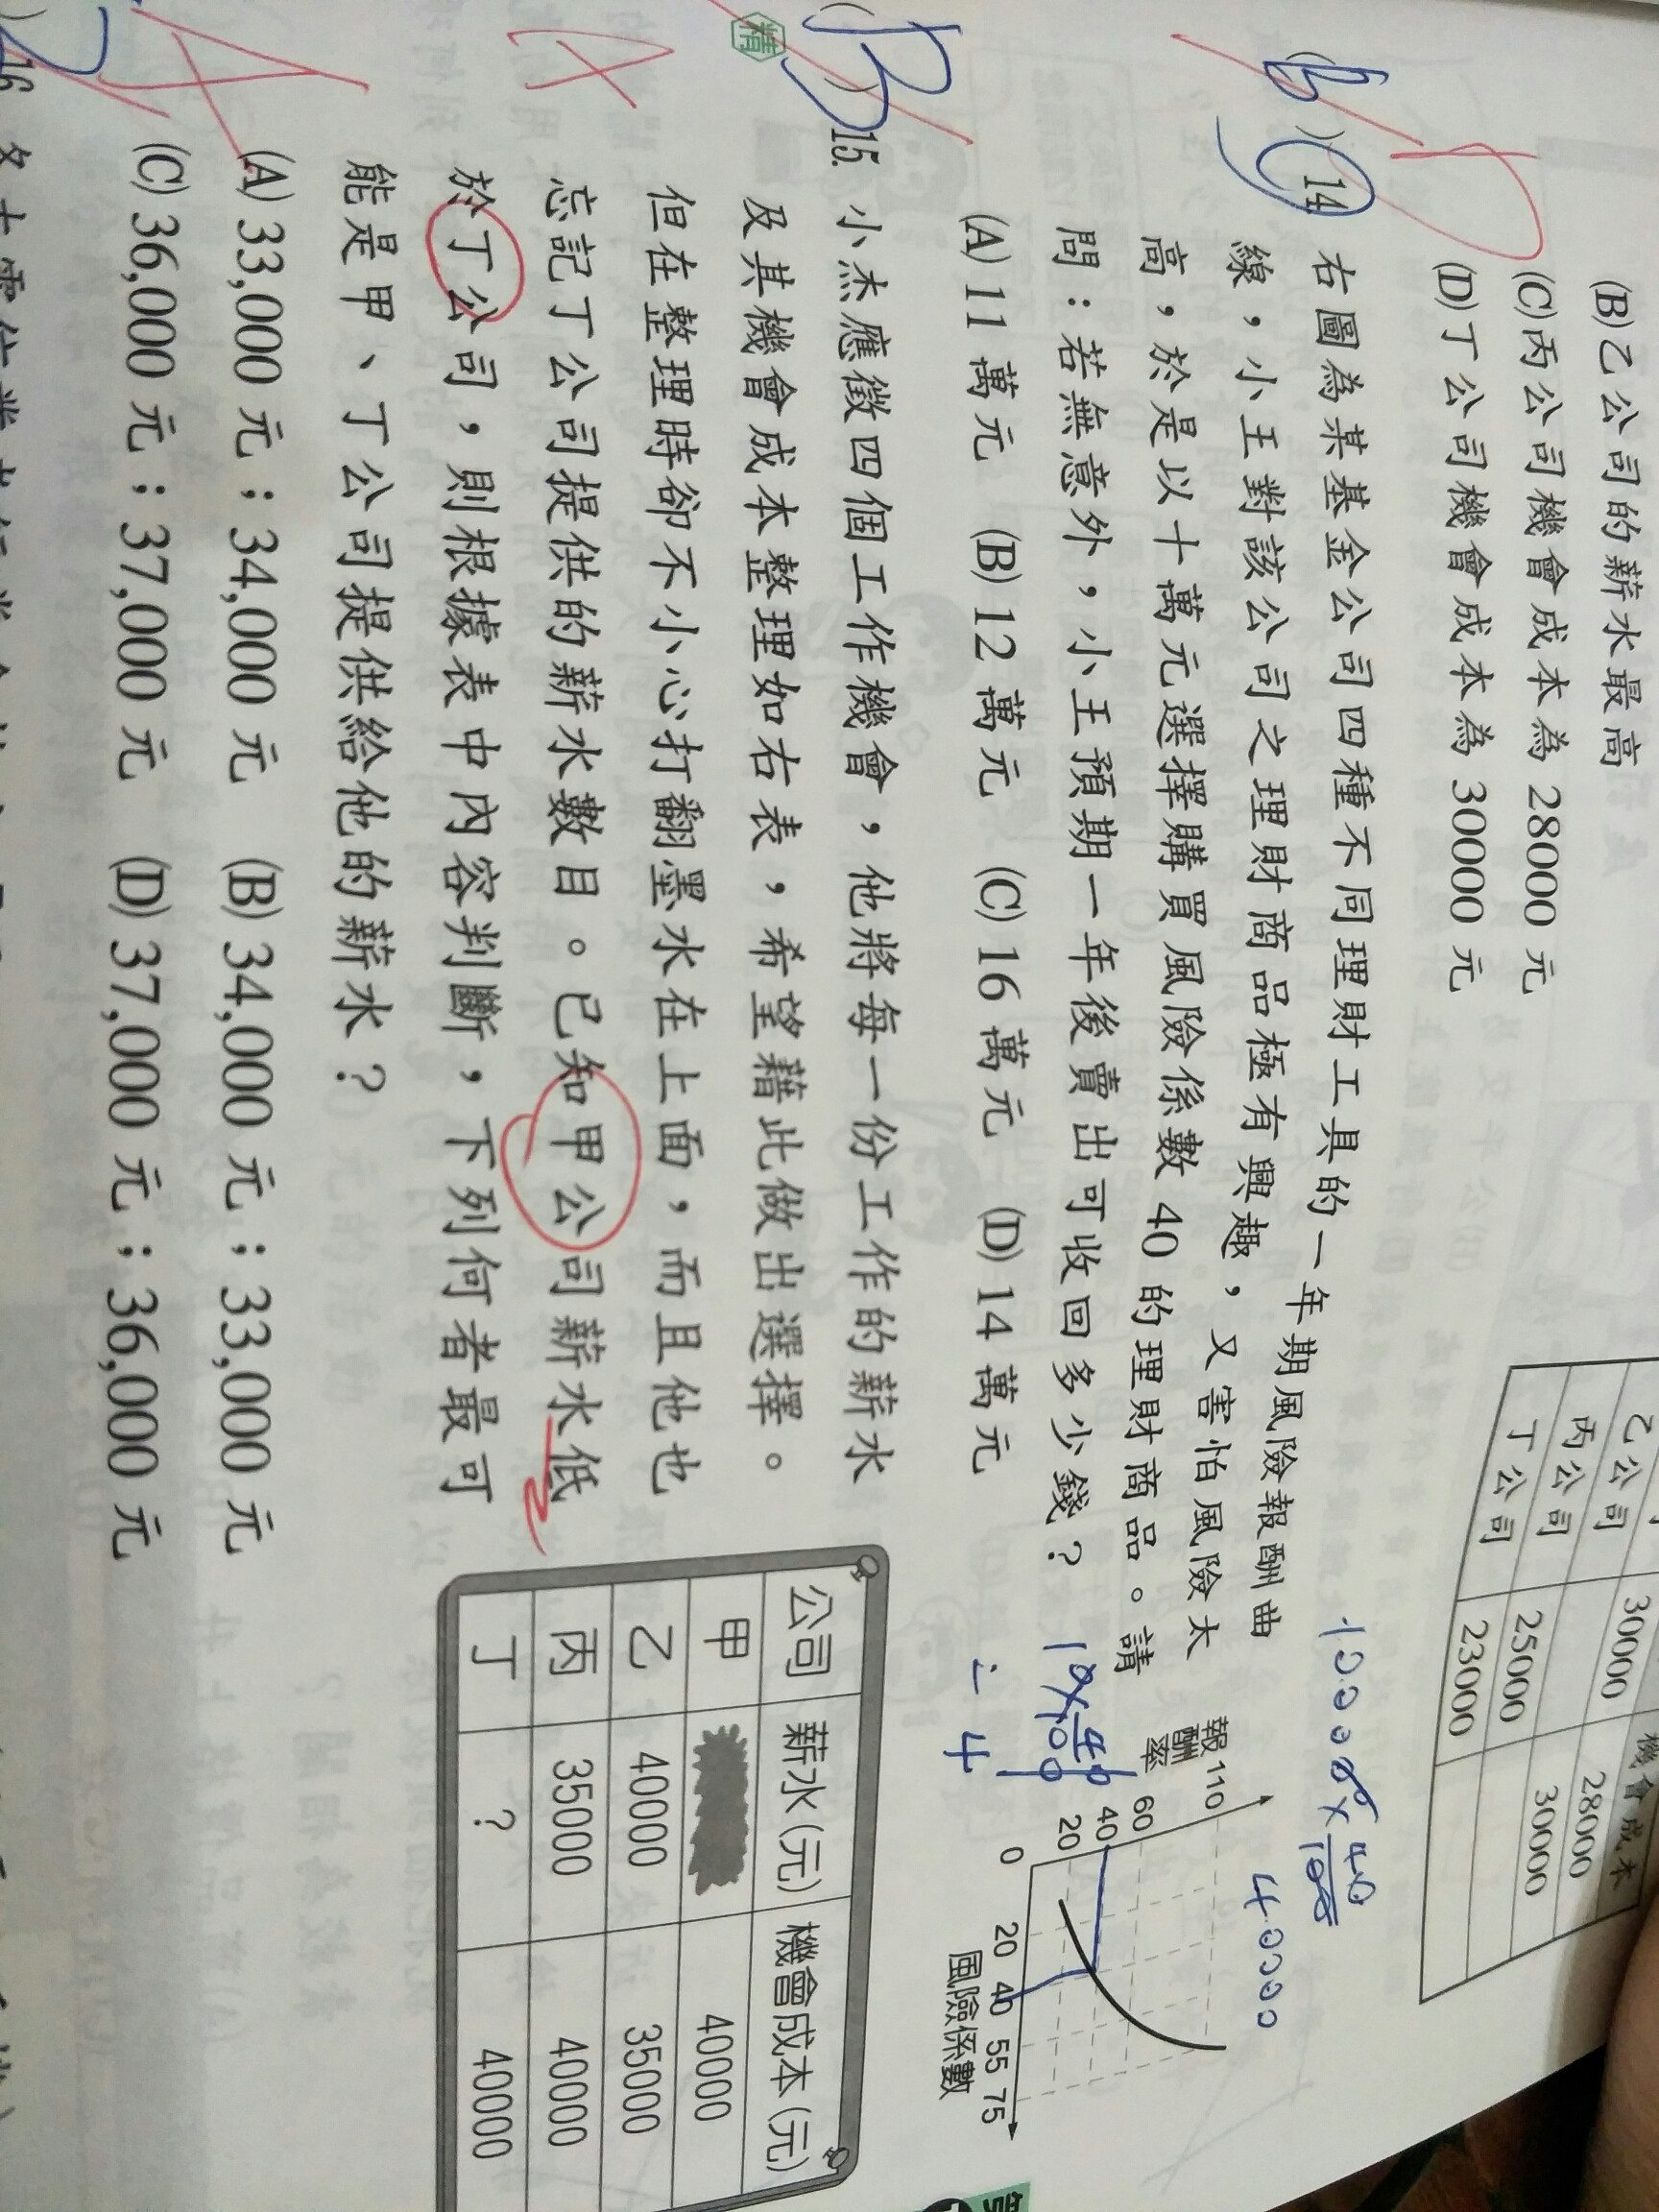 (B)乙公司的薪水最高
(C)丙公司機會成本為 28000 元
(D)丁公司機會成本為 30000 元
機會成本
28000
乙公司 30000 30000
丙公司 25000
丁公司 23000
(B) 14. 右圖為某基金公司四種不同理財工具的一年期風險報酬曲
線，小王對該公司之理財商品極有興趣，又害怕風險太
高，於是以十萬元選擇購買風險係數 40 的理財商品。請
問：若無意外，小王預期一年後賣出可收回多少錢？
(A) 11 萬元 (B) 12 萬元 (C) 16 萬元 (D) 14 萬元
報酬率
110
60
40
20
0 20 40 55 75
風險係數
40000
精
(B) 15. 小杰應徵四個工作機會，他將每一份工作的薪水
及其機會成本整理如右表，希望藉此做出選擇。
但在整理時卻不小心打翻墨水在上面，而且他也
忘記丁公司提供的薪水數目。已知甲公司薪水低
於丁公司，則根據表中內容判斷，下列何者最可
能是甲、丁公司提供給他的薪水？
(A) 33,000 元；34,000 元 (B) 34,000 元；33,000 元
(C) 36,000 元；37,000 元 (D) 37,000 元；36,000 元
公司 薪水(元) 機會成本(元)
甲 40000
乙 40000 35000
丙 35000 40000
丁 ? 40000
A
16